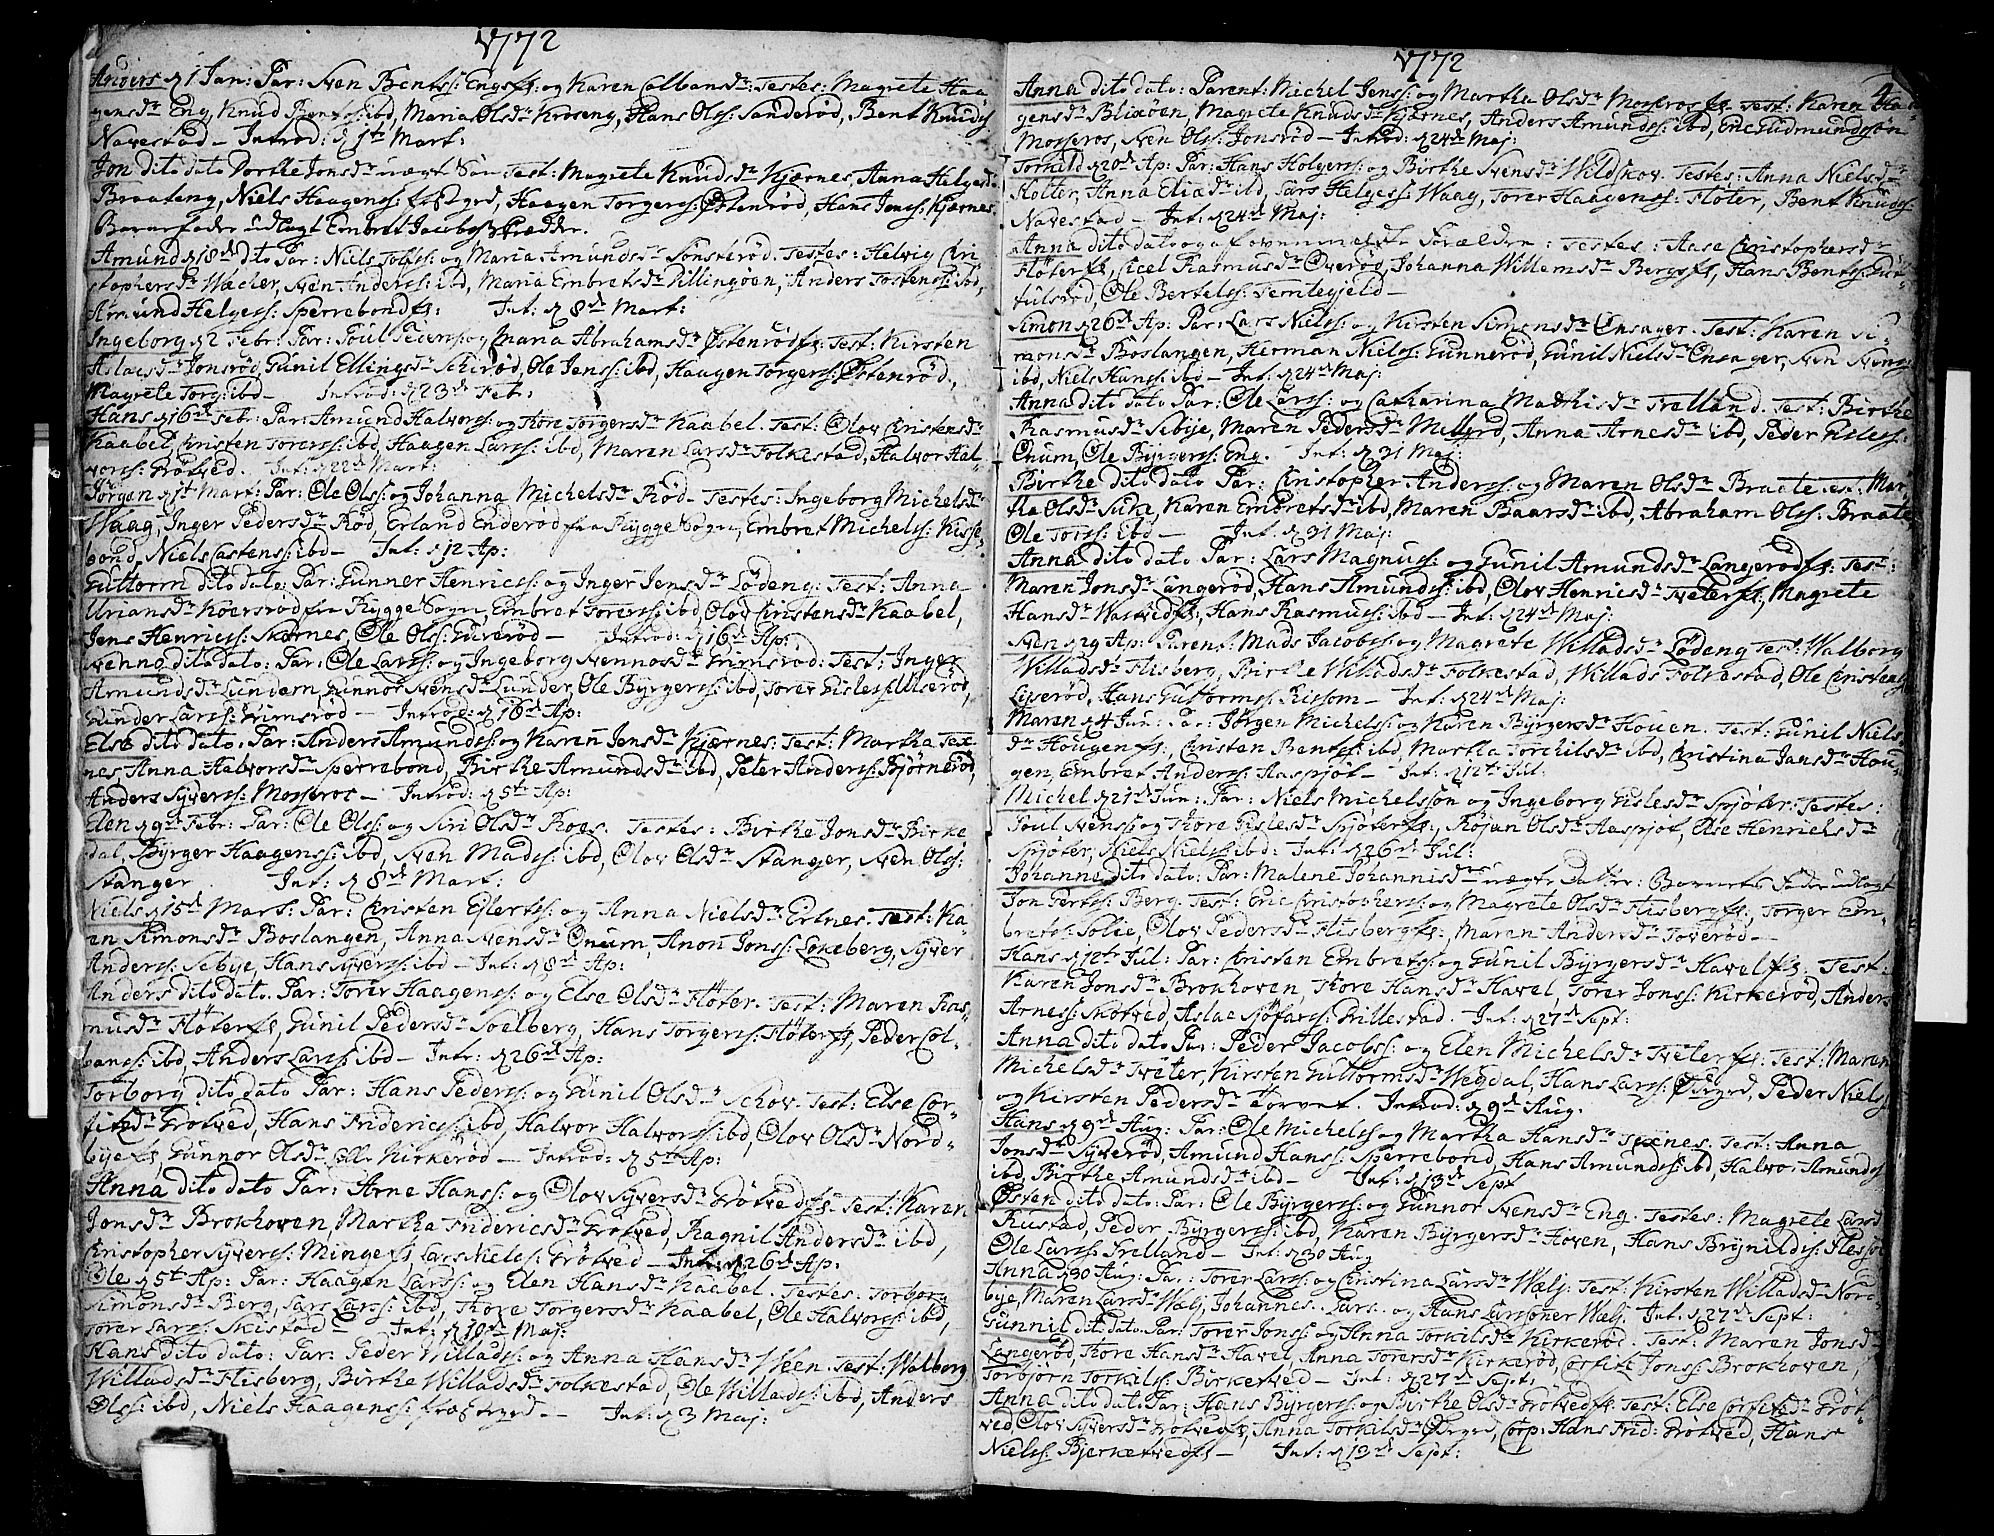 1772
Anders d 1 Jan: Par: Sven Bentss: Engsfs og Karen Colbansdr: Testes: Magrete Haa=
gensdr Eng, Knud Bentss: ibd, Maria Olsdr Kroseng, Hans Olss: Sanderød, Bent Knudss
Navestad – Introd: d 1st Mart:
Jon dito dato Dorthe Jonsdr uægte Søn Test: Magrete Knudsdr Kjærnes, Anna Helgesdr
Braateng, Niels Haagenss: Haagen Torgerss: Østenrød, Hans Jonss: Kjærnes.
Barnefader udlagt Embret Jacobss: Skredder.
Amund d 18de dito Par: Niels Tolfss: og Maria Amundsdr Sonsterød. Testes: Helvig Cri=
stophersdr Wacher, Sven Anderss: ibd, Maria Embretsdr Dillingøen, Anders Tostenss: ibd,
Amund Helgess: Sperrebondfs: Int: d 8de Mart:
Ingeborg d 2 Febr: Par: Poul Pederss: og Maria Abrahamsdr Østenrødfs: Test: Kirsten
Aslacsdr Jonsrød, Gunil Ellingsdr Ole Jenss: ibd, Haagen Torgerss: Østenrød,
Magrete Torg: ibd – Introd: d 23de Feb:
Hans d 16de Febr: Par: Amund Halvorss: og Thore Torgersdr Kaabel. Test: Olov Cristensdr
Kaabel, Cristen Torerss: ibd, Haagen Larss: ibd, Maren Larsdr Folkestad, Halvor Hal=
vorss: Grøtved. Int: d 22de Mart:
Jørgen d 1st Mart: Par: Ole Olss: og Johanna Michelsdr Rød – Testes: Ingeborg Michelsdr
Waag, Inger Pedersdr Rød, Erland Enderød fra Rygge Sogn, Embret Michelss: Kisse=
bond, Niels Castenss: ibd – Int: d 12 Ap:
Guttorm dito dato: Par: Gunner Henricss: og Inger Jensdr Lødeng: Test: Anna
Uriansdr fra Rygge Sogn, Embret Torerss: ibd, Olov Cristensdr Kaabel,
Jens Henricss: Skornes, Ole Olss: Gurerød – Introd: d 16de Ap:
Svenno dito dato: Par: Ole Larss: og Ingeborg Svennosdr Grimsrød: Test: Inger
Amundsdr Lundem, Gunnor Svensdr Lunder, Ole Byrgerss: ibd, Torer Gisless: Ulserød,
Gunder Larss: Grimsrød – Introd: d 16de Ap:
Else dito dato: Par: Anders Amundss: og Karen Jensdr Kjærnes: Test: Martha Tex=
nes, Anna Halvorsdr Sperrebond, Birthe Amundsdr ibd, Peter Anderss: Bjørnerød,
Anders Syverss: Mosseros – Introd: d 5te Ap:
Elen d 9de Febr: Par: Ole Olss: og Siri Olsdr Roos. Testes: Birthe Jonsdr Birke
dal, Byrger Haagenss: ibd, Sven Madss: ibd, Olov Olsdr Stanger, Sven Olss:
Stanger Int: d 8de Mart:
Niels d 15de Mart: Par: Cristen Ejlertss: og Anna Nielsdr Ertnes. Test: Ka=
ren Simonsdr Boslangen, Anna Svensdr Onum, Anon Jonss: Lokeberg, Syver
Anderss: Sebye, Hans Syverss: ibd – Int: d 8de Ap:
Anders dito dato. Par: Torer Haagenss: og Else Olsdr Fløter. Test: Maren Ras=
musdr Fløterfs, Gunil Pedersdr Soelberg, Hans Torgerss: Fløterfs, Peder Col=
banss: ibd, Anders Larss: ibd – Intr: d 26de Ap:
Torborg dito dato Par: Hans Pederss: og Gunil Olsdr Schov. Test: Else Cor=
fitzdr Grøtved, Hans Fridericss: ibd, Halvor Halvorss: ibd, Olov Olsdr Nord=
byefs, Gunnor Olsdr Lille Kirkerød – Introd: d 5te Ap:
Anna dito dato Par: Arne Hanss: og Olov Syversdr Grøtvedfs: Test: Karen
Jonsdr Brokhoven, Martha Fridericsdr Grøtved, Ragnil Andersdr ibd,
Christopher Syverss: Mingefs, Lars Nielss: Grøtved – Int: d 26de Ap:
Ole d 5te Ap: Par: Haagen Larss: og Elen Hansdr Kaabel. Testes: Torborg
Simonsdr Berg, Lars Larss: ibd, Thore Torgersdr Kaabel, Ole Halvorss: ibd,
Torer Larss: Skistad – Int: d 10de Maj:
Hans dito dato: Par: Peder Willadss: og Anna Hansdr Ween. Test: Walborg
Willadsdr Flisberg, Birthe Willadsdr Folkestad, Ole Willadss: ibd, Anders
Olss: ibd, Niels Haagenss: – Int: d 3 Maj:
1772
4
Anna dito dato: Parent: Michel Jenss: og Martha Olsdr Mosserosfs Test: Karen Haa=
gensdr Blixøen, Magrete Knudsdr Kjærnes, Anders Amundss: ibd, Eric Gudmundssøn
Mosseros, Sven Olss: Jonsrød – Introd: d 24de Maj:
Torkild d 20de Ap: Par: Hans Holgerss: og Birthe Svensdr Wildskov. Testes: Anna Nielsdr
Holter, Anna Eliadr ibd, Lars Helgess: Waag, Torer Haagenss: Fløter, Bent Knudss:
Navestad – Int: d 24de Maj:
Anna dito dato og af ovenmeldte Forældre: Testes: Aase Cristophersdr
Fløterfs, Cicel Rasmusdr Overød, Johanna Willemsdr Bergsfs, Hans Bentss: Gut=
tulsrød, Ole Bertelss: Temtegjeld –
Simon d 26de Ap: Par: Lars Nielss: og Kirsten Simonsdr Onsager. Test: Karen Si=
monsdr Boslangen, Herman Nielss: Gunnerød, Gunil Nielsdr Onsager, Sven Svenss:
ibd, Niels Hanss: ibd – Int: d 24de Maj:
Anna dito dato Par: Ole Larss: og Catharina Mathisdr Trelland. Test: Birthe
Rasmusdr Sebye, Maren Pedersdr Mellgrd, Anna Arnesdr ibd, Peder Gisless:
Onum, Ole Byrgerss: Eng. Int: d 31 Maj:
Birthe dito dato Par: Cristopher Anderss: og Maren Olsdr Braate Test: Mar=
tha Olsdr Sike, Karen Embretsdr ibd, Maren Baarsdr ibd, Abraham Olss: Braate
Ole Torss: ibd – Int: d 31 Maj:
Anna dito dato Par: Lars Magnuss: og Gunil Amundsdr Langerødfs: Test:
Maren Jonsdr Langerød, Hans Amundss: ibd, Olov Henricsdr Tveterfs, Magrete
Hansdr Wastvedfs, Hans Rasmuss: ibd – Int: d 24de Maj:
Sven d 29 Ap: Parent: Mads Jacobss: og Magrete Willadsdr Lødeng Test: Walborg
Willadsdr Flisberg, Birthe Willadsdr Folkestad, Willads Folkestad, Ole Cristenss
Liverød, Hans Guttormss: Rissom – Int: d 24de Maj:
Maren d 4 Jun: Par: Jørgen Michelss: og Karen Byrgersdr Houen. Test: Gunil Niels
dr Hougenfs, Cristen Bentss: ibd, Martha Torchilsdr ibd, Cristina Jansdr Hou=
gen, Embret Anderss: Aaspjøt – Int: d 12te Jul:
Michel d 21de Jun: Par: Niels Michelssøn og Ingeborg Gislesdr Spjøter: Testes:
Poul Svenss: og Thore Gislesdr Spjøterfs, Røjan Olsdr Aaspjøt, Else Henrichsdr
Spjøter, Niels Nielss: ibd: Int: d 26de Jul:
Johanne dito dato: Par: Malene Johannisdr uægte Datter: Barnets Fader udlagt
Jon Pertss: Berg. Test: Eric Cristopherss: og Magrete Olsdr Flisbergfs: Torger Em=
bretss: Solie, Olov Pedersdr Flisbergfs: Maren Andersdr Toverød –
Hans d 12te Jul: Par: Cristen Embretss: og Gunil Byrgersdr Havelfs: Test:
Karen Jonsdr Brokhoven, Thore Hansdr Havel, Torer Jonss: Kirkerød, Anders
Arness: Skotved, Aslac Sjøfarss: Grillestad. Int: d 27de Sept:
Anna dito dato Par: Peder Jacobss: og Elen Michelsdr Tveterfs: Test: Maren
Michelsdr Tveter, Kirsten Guttormsdr Wegdal, Hans Larss: Øvrgrd, Peder Nielss
og Kirsten Pedersdr Torvet. Introd: d 9de Aug:
Hans d 9de Aug: Par: Ole Michelss: og Martha Hansdr Texnes. Test: Anna
Jonsdr Syverød, Amund Hanss: Sperrebond, Hans Amundss: ibd, Halvor Amundss
ibd, Byrthe Amundsdr ibd – Int: d 13de Sept
Østen dito dato: Par: Ole Byrgerss: og Gunnor Svensdr Eng. Testes: Magrete Larsd
Rustad, Peder Byrgerss: ibd, Karen Byrgersdr Hoven, Hans Brynildss: Flesjøe
Ole Larss: Trelland – Int: d 30 Aug
Anna d 30 Aug: Par: Torer Larss: og Cristina Larsdr Wælj: Test: Kirsten Willadsdr Nord=
bye, Maren Larsdr Wælj, Johannes. Lars. og Hans Larssøner Wælj. Int: d 27de Sept:
Gunnil dito dato. Par: Torer Jonss: og Anna Torkilsdr Kirkerød. Test: Maren Jonsdr
Langerød, Thore Hansdr Havel, Anna Torersdr Kirkerød, Corfitz Jonss: Brokhoven,
Torbjørn Torkilss: Birketved – Int: d 27de Sept:
Anna dito dato Par: Hans Byrgerss: og Birthe Olsdr Grøtvedfs Test: Else Corfitzdr Grøt=
ved, Olov Syversdr Grøtvedfs, Anna Torkilsdr Øvrgrd, Corp: Hans Frid: Grøtved, Hans
Nielss: Bjerketvedfs – Int: d 13de Sept: